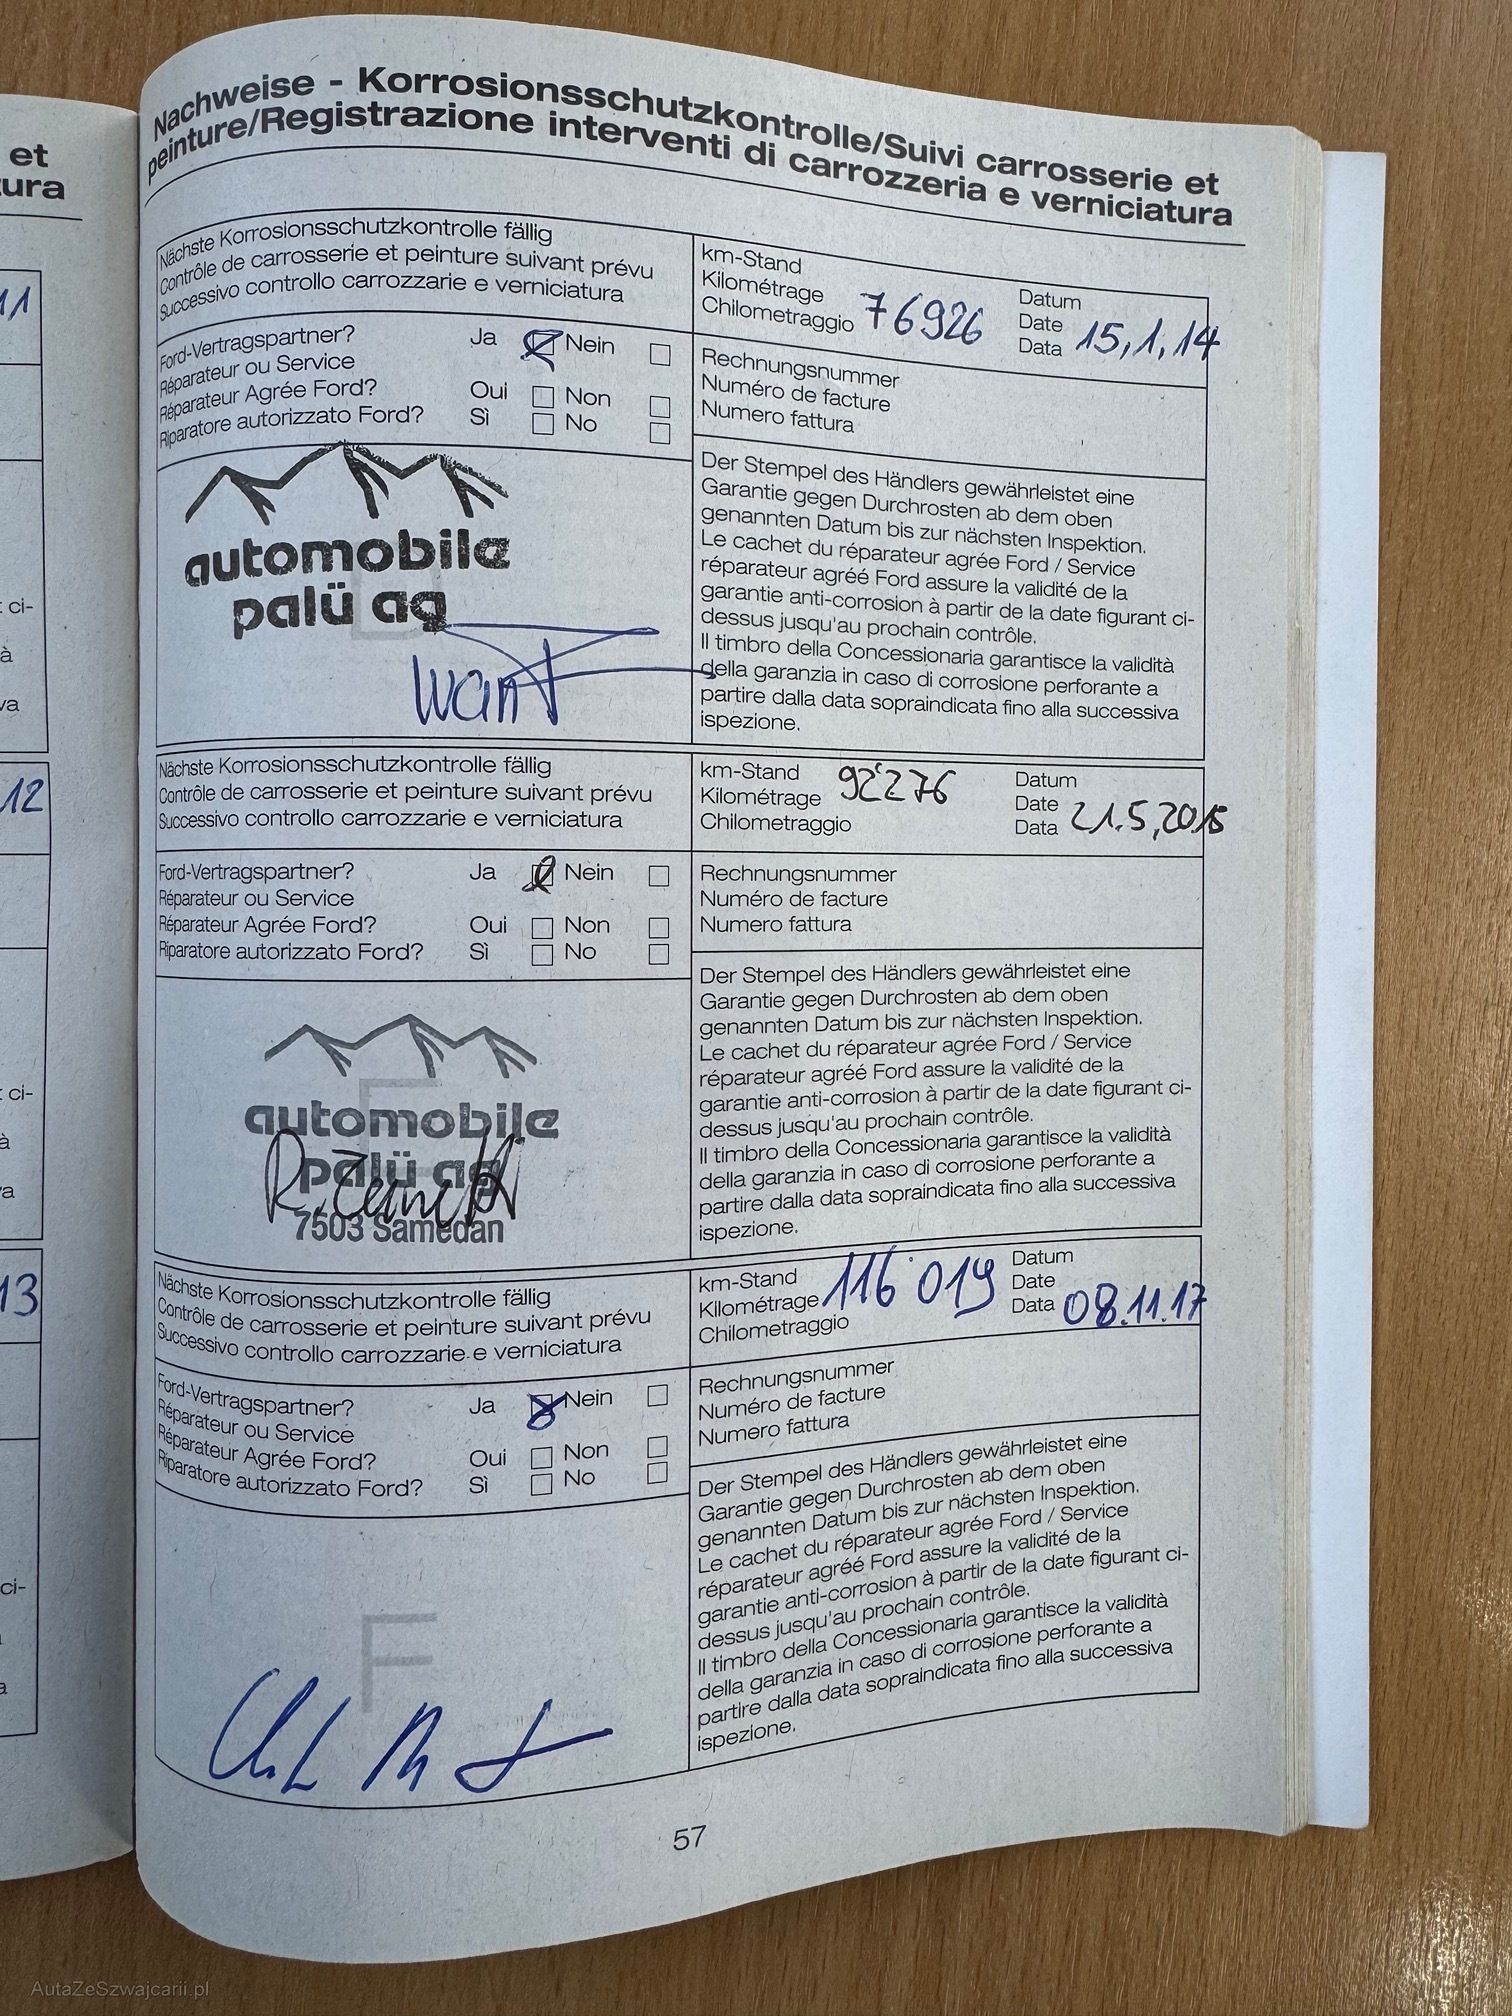 et
tura
11
12
13
ci-
à
va
ci-
à
va
ci-
a
Nachweise - Korrosionsschutzkontrolle/Suivi carrosserie et
peinture/Registrazione interventi di carrozzeria e verniciatura
Nächste Korrosionsschutzkontrolle fällig
Contrôle de carrosserie et peinture suivant prévu
Successivo controllo carrozzarie e verniciatura
km-Stand
Kilométrage
Chilometraggio
76926
Datum
Date
Data
15,1,14
Ford-Vertragspartner?
Réparateur ou Service
Réparateur Agrée Ford?
Riparatore autorizzato Ford?
Ja Nein
Oui Non
Sì No
Rechnungsnummer
Numéro de facture
Numero fattura
automobile
palü ag
Der Stempel des Händlers gewährleistet eine
Garantie gegen Durchrosten ab dem oben
genannten Datum bis zur nächsten Inspektion.
Le cachet du réparateur agrée Ford / Service
réparateur agréé Ford assure la validité de la
garantie anti-corrosion à partir de la date figurant ci-
dessus jusqu'au prochain contrôle.
Il timbro della Concessionaria garantisce la validità
della garanzia in caso di corrosione perforante a
partire dalla data sopraindicata fino alla successiva
ispezione.
Nächste Korrosionsschutzkontrolle fällig
Contrôle de carrosserie et peinture suivant prévu
Successivo controllo carrozzarie e verniciatura
km-Stand
Kilométrage
Chilometraggio
92'276
Datum
Date
Data
21.5.2015
Ford-Vertragspartner?
Réparateur ou Service
Réparateur Agrée Ford?
Riparatore autorizzato Ford?
Ja Nein
Oui Non
Sì No
Rechnungsnummer
Numéro de facture
Numero fattura
E
automobile
palü ag
7503 Samedan
Der Stempel des Händlers gewährleistet eine
Garantie gegen Durchrosten ab dem oben
genannten Datum bis zur nächsten Inspektion.
Le cachet du réparateur agrée Ford / Service
réparateur agréé Ford assure la validité de la
garantie anti-corrosion à partir de la date figurant ci-
dessus jusqu'au prochain contrôle.
Il timbro della Concessionaria garantisce la validità
della garanzia in caso di corrosione perforante a
partire dalla data sopraindicata fino alla successiva
ispezione.
Nächste Korrosionsschutzkontrolle fällig
Contrôle de carrosserie et peinture suivant prévu
Successivo controllo carrozzarie e verniciatura
km-Stand
Kilométrage
Chilometraggio
116 019
Datum
Date
Data
08.11.17
Ford-Vertragspartner?
Réparateur ou Service
Réparateur Agrée Ford?
Riparatore autorizzato Ford?
Ja Nein
Oui Non
Sì No
Rechnungsnummer
Numéro de facture
Numero fattura
F
Der Stempel des Händlers gewährleistet eine
Garantie gegen Durchrosten ab dem oben
genannten Datum bis zur nächsten Inspektion.
Le cachet du réparateur agrée Ford / Service
réparateur agréé Ford assure la validité de la
garantie anti-corrosion à partir de la date figurant ci-
dessus jusqu'au prochain contrôle.
Il timbro della Concessionaria garantisce la validità
della garanzia in caso di corrosione perforante a
partire dalla data sopraindicata fino alla successiva
ispezione.
57
AutaZeSzwajcarii.pl